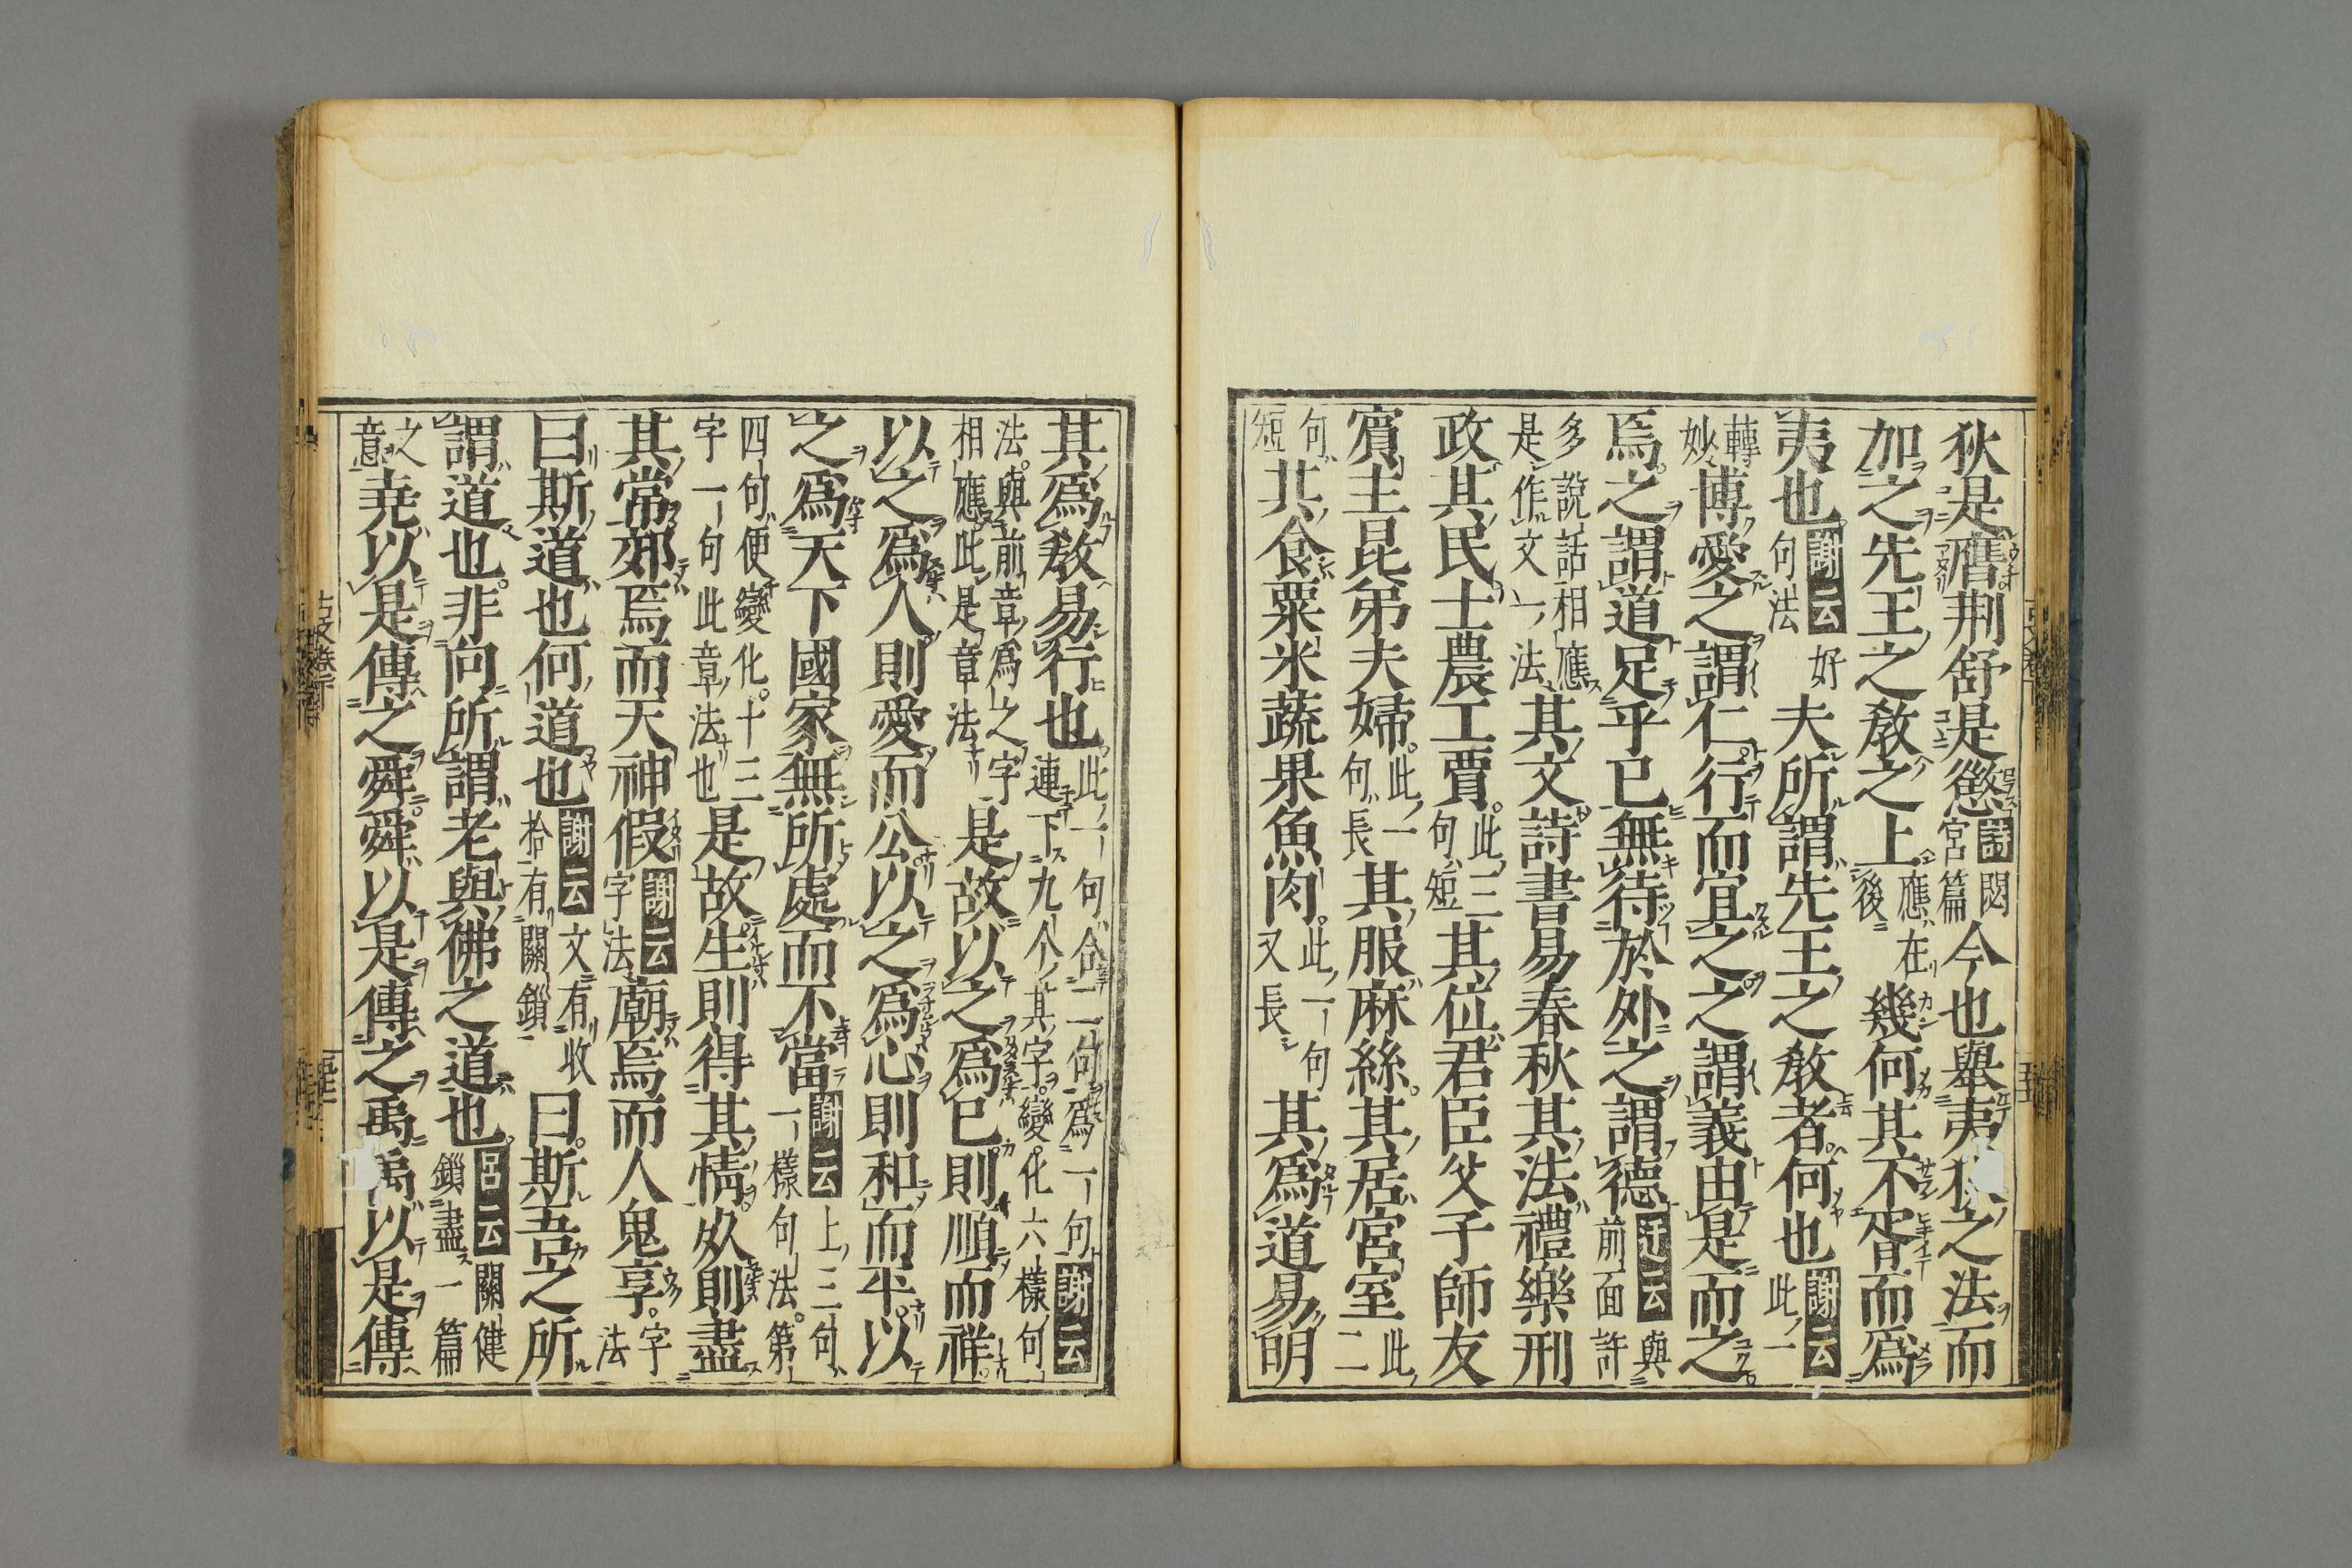 狄是膺荆舒是懲詩閟宮篇今也舉夷狄之法而
加之先王之教之上應在後幾何其不胥而爲
夷也謝云句法好夫所謂先王之教者何也謝云此一
轉妙博愛之謂仁行而宜之之謂義由是而之
焉之謂道足乎已無待於外之謂德迂云與前面許
多說話相應是作文一法其文詩書易春秋其法禮樂刑
政其民士農工賈此三句短其位君臣父子師友
賓主昆弟夫婦此一句長其服麻絲其居宮室此二
句短其食粟米蔬果魚肉此一句又長其爲道易明
其爲教易行也此一句合二句爲一句謝云連下九个其字變化六樣句
法與前章爲之字相應此是章法是故以之爲已則順而祥
以之爲人則愛而公以之爲心則和而平以
之爲天下國家無所處而不當謝云上三句一樣句法第
四句便變化十三字一句此章法也是故生則得其情死則盡
其常郊焉而天神假謝云字法廟焉而人鬼享字法
曰斯道也何道也謝云文有收拾有關鎖曰斯吾之所
謂道也非向所謂老與佛之道也呂云關鍵鎖盡一篇
之意堯以是傳之舜舜以是傳之禹禹以是傳